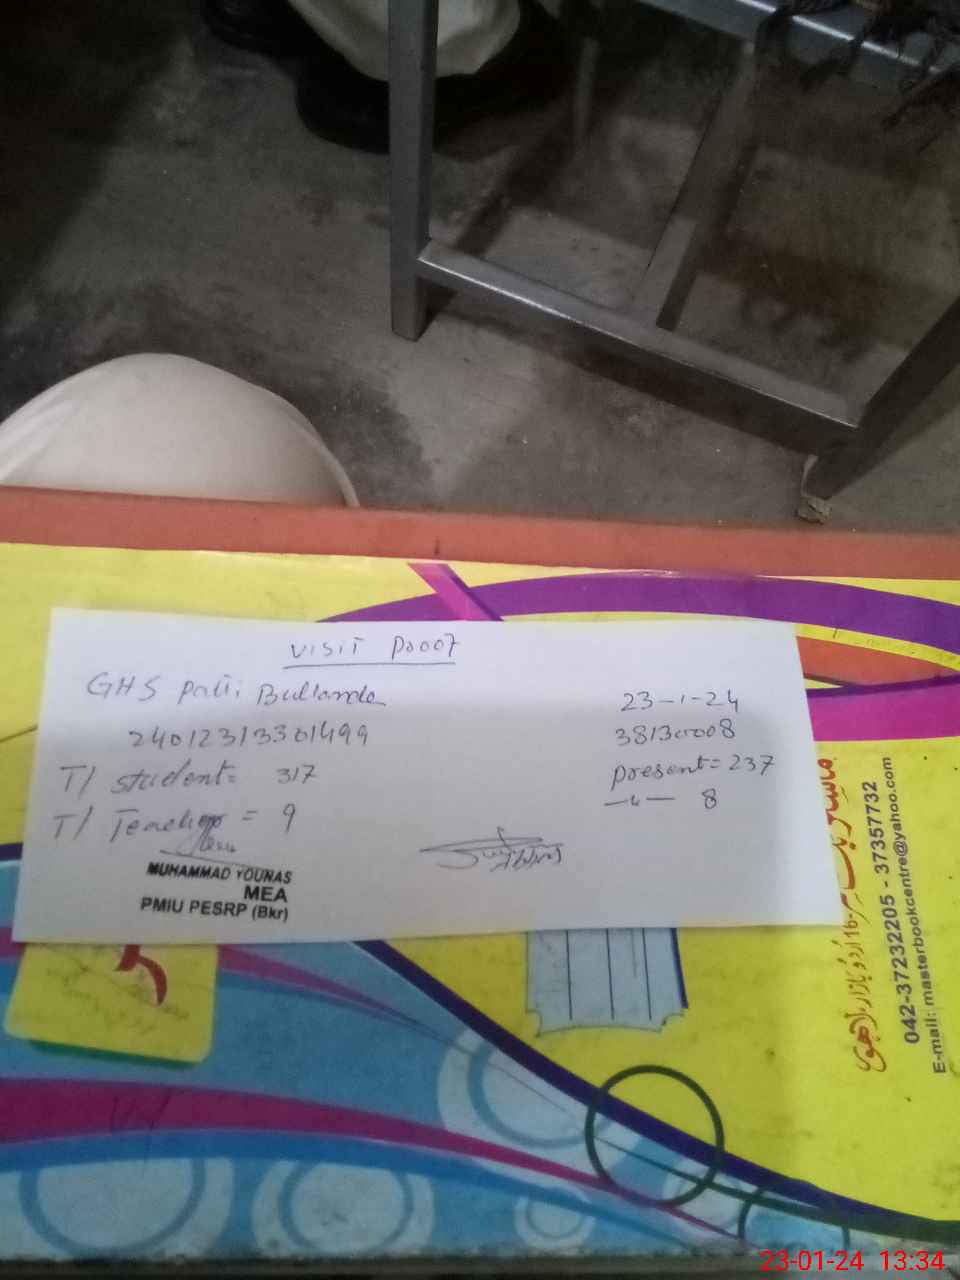 VISIT Proof
GHS Patti Bullanda 23-1-24
24012313301499 38130008
T/ student= 317 present= 237
T/ Teacher = 9 —"— 8
MUHAMMAD YOUNAS
MEA
PMIU PESRP (Bkr)
042-37232205 - 37357732
E-mail: masterbookcentre@yahoo.com
23-01-24 13:34